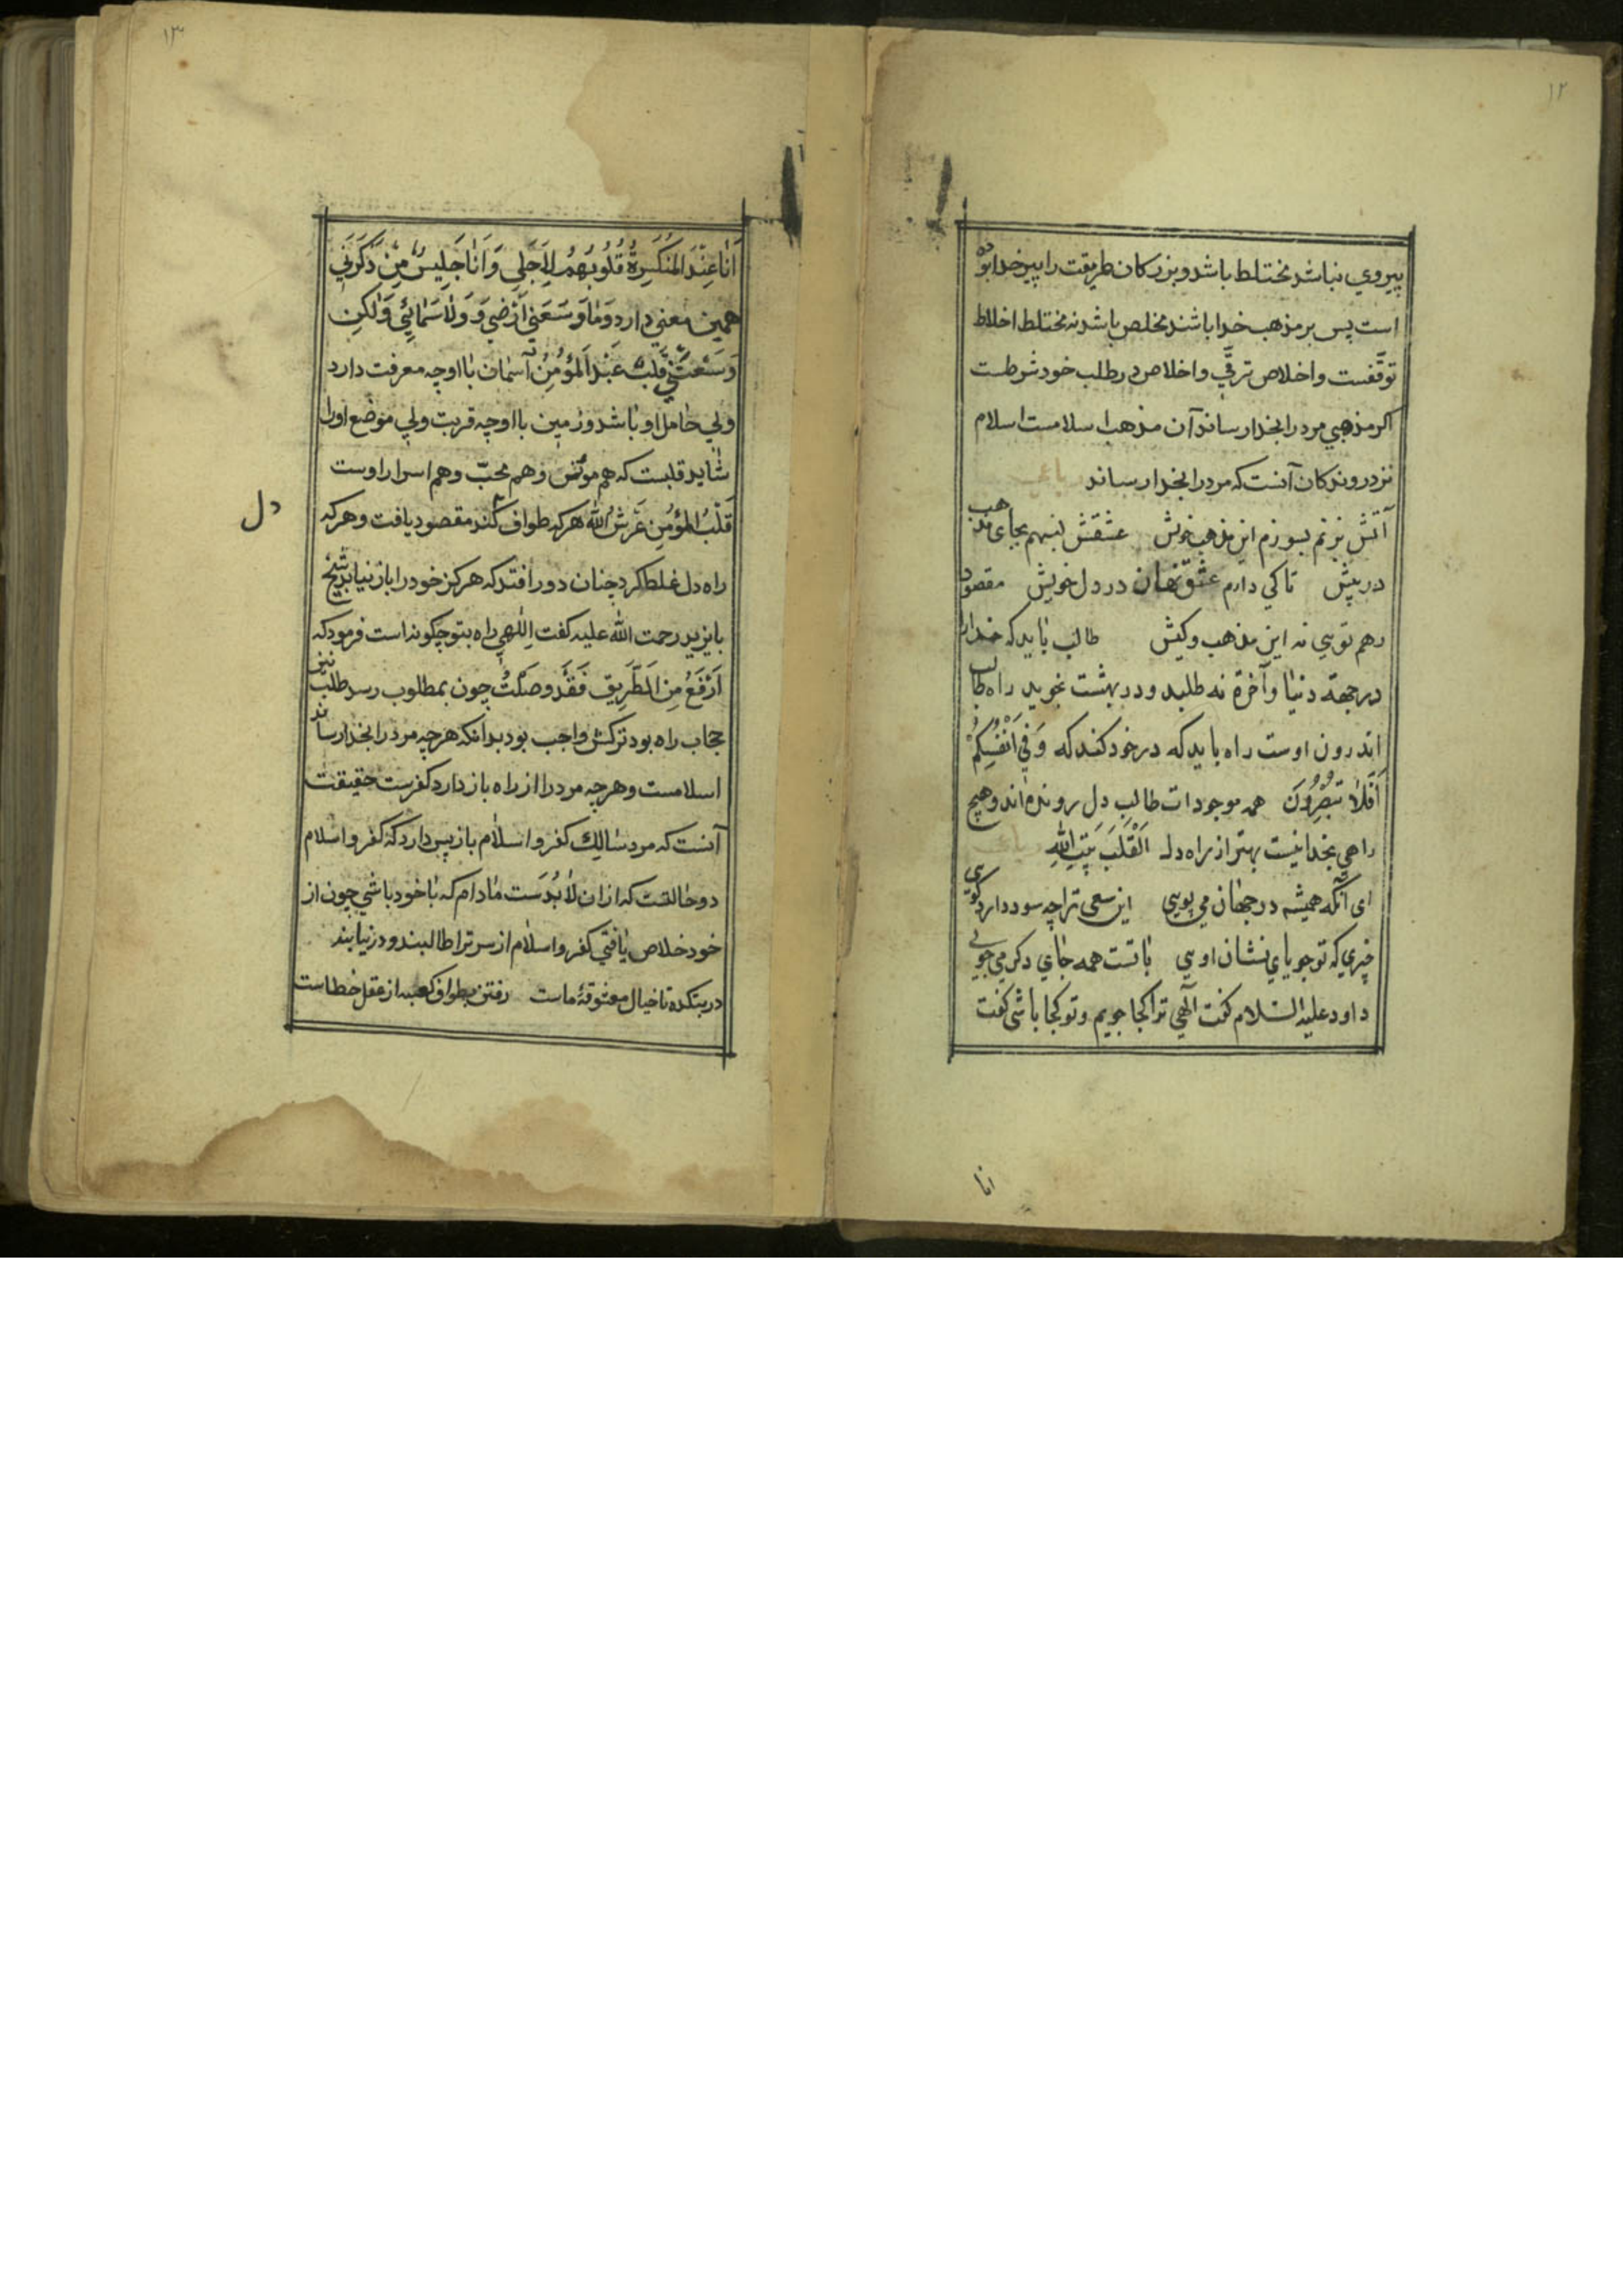 ۱۲
پیروی نباشد مختلط باشد و بزرکان طریقت را پیر خدا بوده
است پس بر مذهب خدا باشند مخلص باشد نه مختلط اخلاط
توقّفست و اخلاص ترقّی و اخلاص در طلب خود شرطست
اکر مذهبی مرد را بخدا رساند آن مذهب اسلامست اسلام
نزد روندکان آنست که مرد را بخدا رساند
آتش بزنم بسوزم این مذهب خویش عشقش بنهم بجای مذهب
در پیش تا کی دارم عشق نهان در دل خویش مقصود
رهم تویی نه این مذهب و کیش طالب باید که خدا را
در جهة دنیا و آخرة نه طلبد و در بهشت نجوید راه طالب
اندرون اوست راه باید که در خود کند که وَفِي اَنْفُسِکُمْ
اَفَلَا تُبْصِرُونَ همه موجودات طالبِ دِل رونده‌اند و هیچ
راهی بخدا نیست بهتر از راه دل اَلْقَلْبُ بَیْتُ اللهِ
ای آنکه همیشه در جهان می پویی این سعی ترا چه سود دارد کویی
چیزی که تو جویای نشان اویی با تست همه جای دکر می جویی
داود علیه السّلام کفت الٓهی ترا کجا جویم و تو کجا باشی کفت
انا
۱۳
اَنَا عِنْدَ الْمُنْکَسِرَةُ قُلُوبُهُمْ لِاَجْلِی وَاَنَا جَلِیسُ مِنْ ذَکَرَنِي
همین معنی دارد وَمَا وَسَعَنِي اَرْضِي وَ وَلَا سَمَائِي وَلٰکِن
وَسَعَتْنِي قَلْبُ عَبْدِ الْمُؤْمِنُ آسمان با او چه معرفت دارد
ولی حامل او باشد و زمین با او چه قربت ولی موضع او را
شاید قلبست که هم مونس و هم محبّ و هم اسرار اوست
قَلْبُ الْمُؤْمِنِ عَرْشُ اللهُ هر که طواف کند مقصود یافت و هر که
دل
راه دل غلط کرد چنان دور افتد که هرکز خود را باز نیابد شیخ
بایزید رحمت الله علیه کفت اِلٰهی راه بتو چکونه است فرمود که
اَرْفَعْ مِنَ الطَّرِیقِ فَقَدْ وَصَلْتُ چون بمطلوب رسد طلب نیز
حجاب راه بود ترکش واجب بود بدانکه هر چه مرد را بخدا رساند
اسلامست و هر چه مرد را از راه باز دارد کفرست حقیقت
آنست که مرد سالِك کفر و اسلام باز پس دارد که کفر و اسلام
دو حالتست که از ان لابُدَست مادام که با خود باشی چون از
خود خلاص یافتی کفر و اسلام از سر ترا طالبند و در نیابند
در بتکده تا خیال معشوقهٔ ماست رفتن بطواف کعبه از عقل خطاست